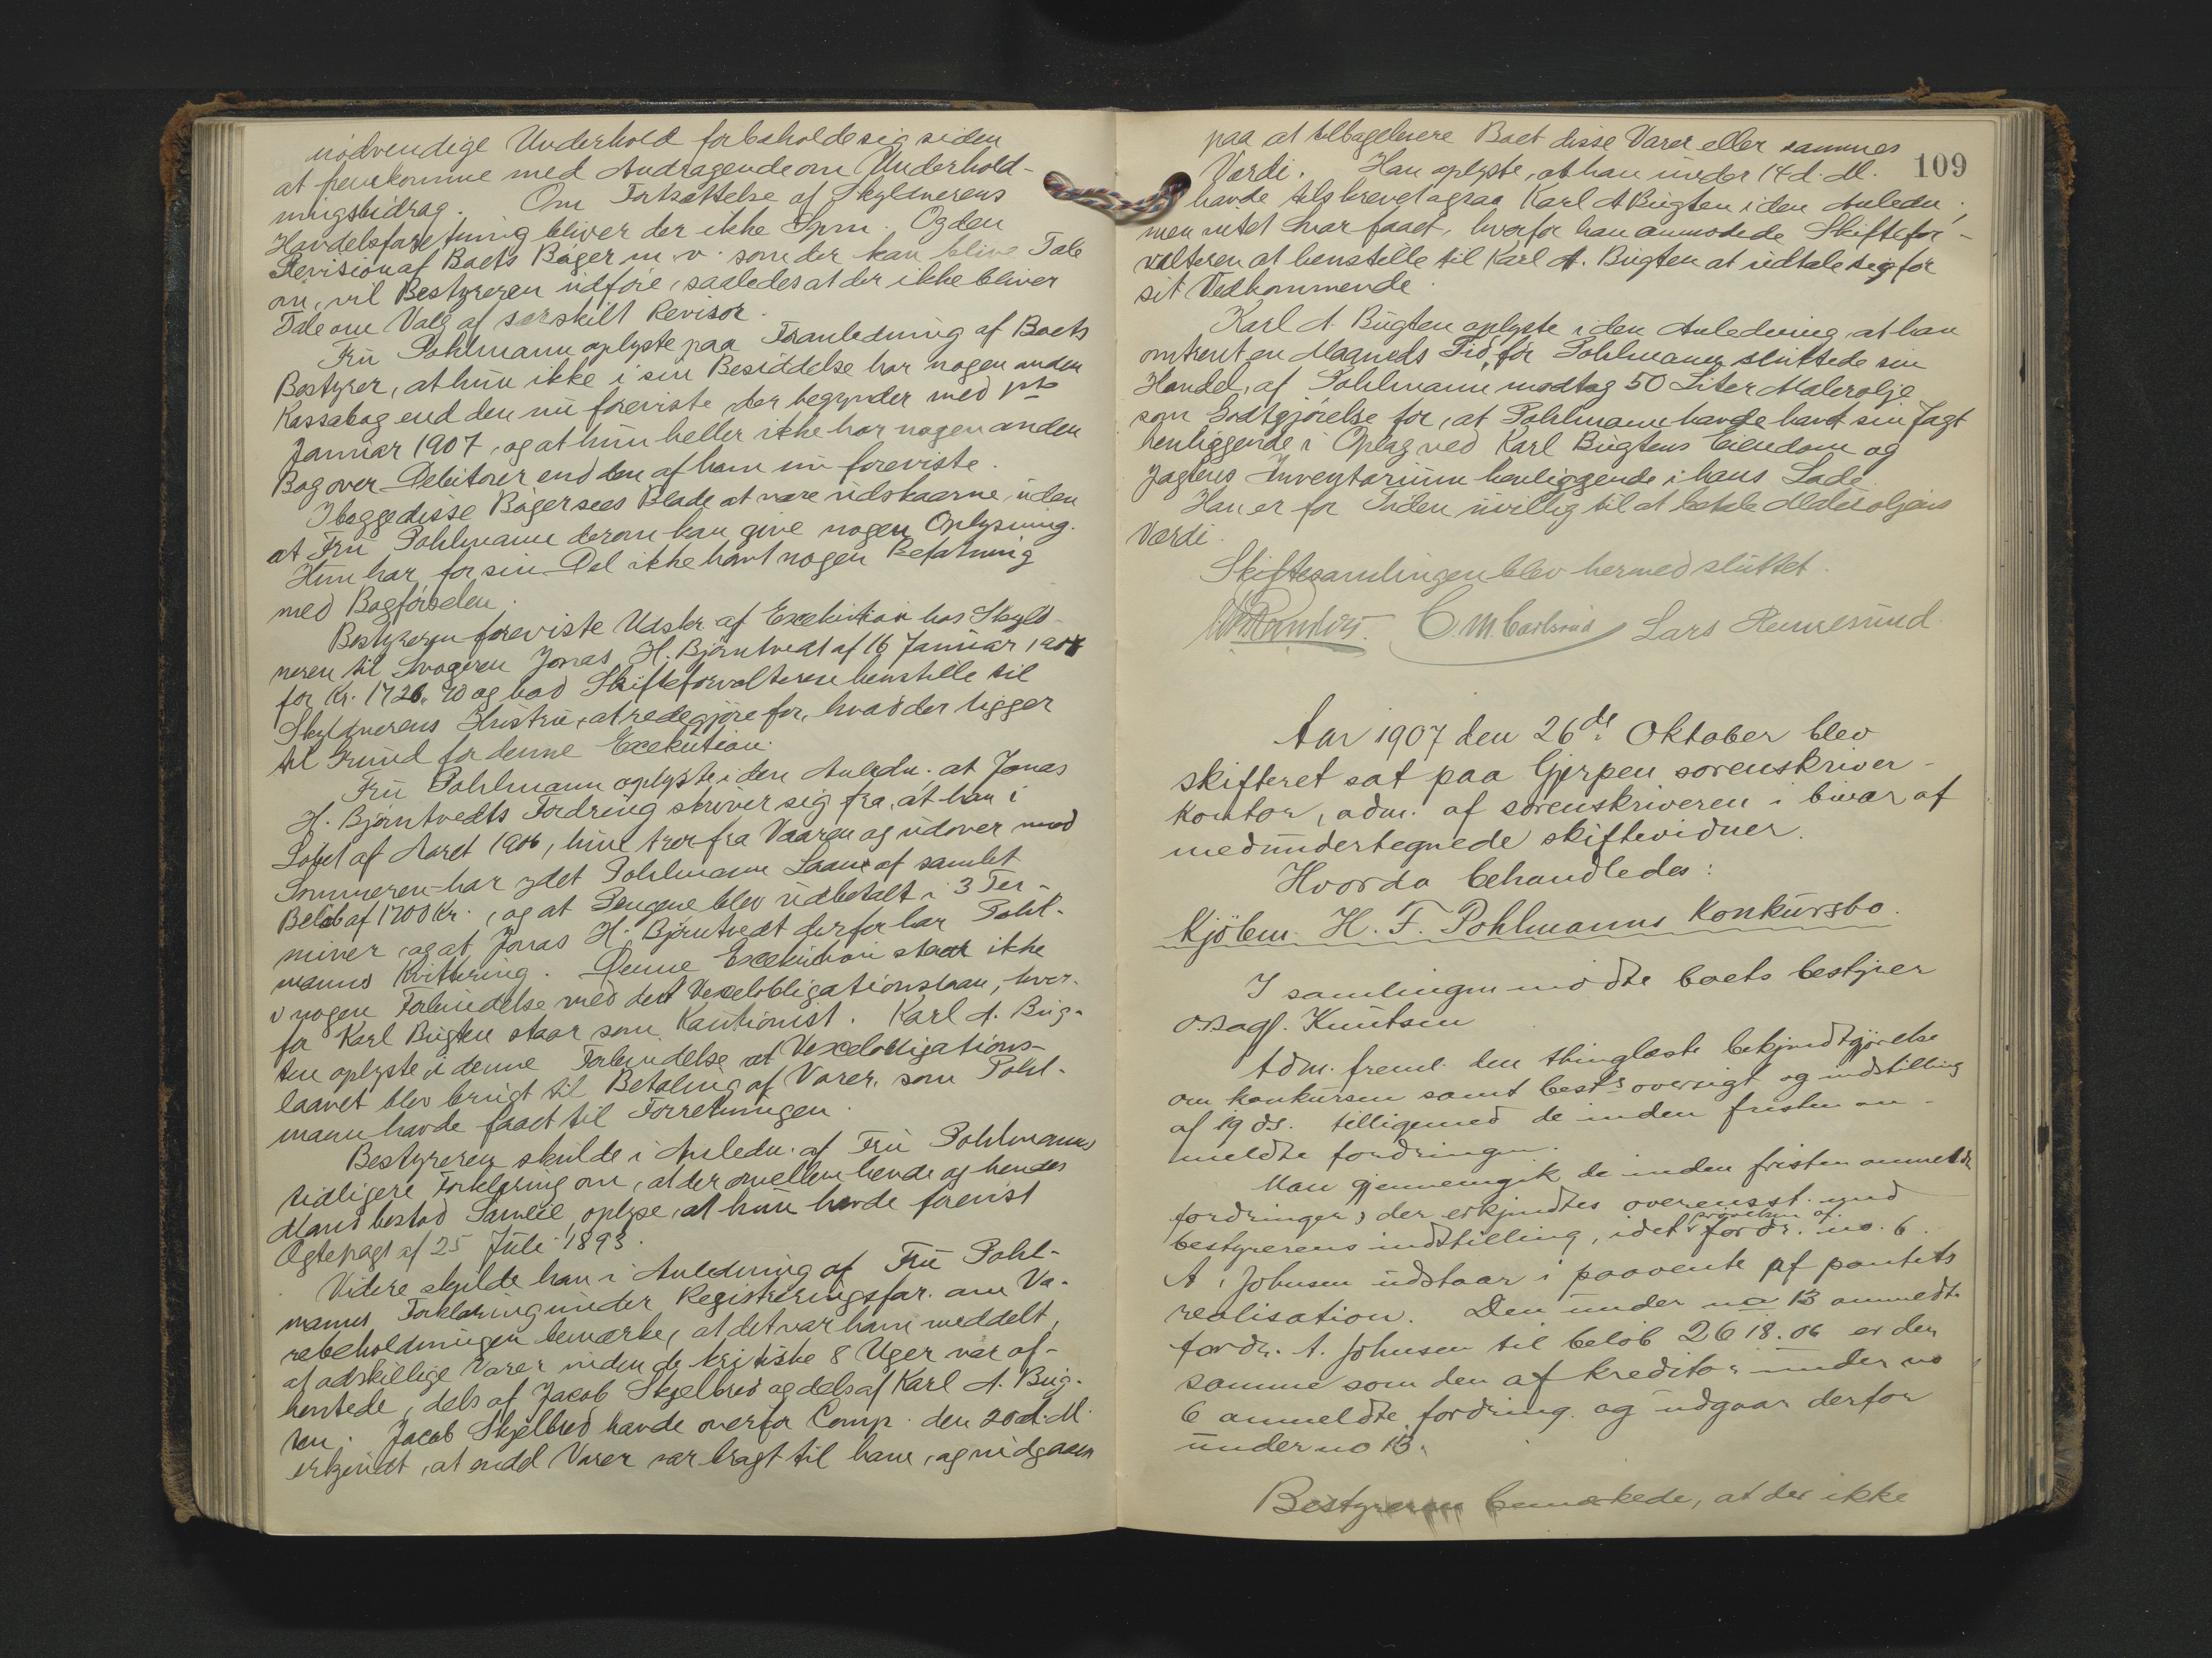 nødvendige Underhold forbeholde sig siden
at fremkomme med Andragende om Underhold-
ningsbidrag. Om Fortsættelse af Skyldnerens
Handelsforretning bliver der ikke Spm. Og den
Revision af Boets Bøger m. v. som der kan blive Tale
om, vil Bestyreren udføre, saaledes at der ikke bliver
Tale om Valg af særskilt Revisor.
Fru Pohlmann oplyste paa Foranledning af Boets
Bestyrer, at hun ikke i sin Besiddelse har nogen anden
Kassabog end den nu foreviste der begynder med 1ste
Januar 1907, og at hun heller ikke har nogen anden
Bog over Debitorer end den af ham nu foreviste.
I begge disse Bøger sees Blade at være udskaarne, uden
at Fru Pohlmann derom kan give nogen Oplysning.
Hun har for sin Del ikke havt nogen Befatning
med Bogførselen.
Bestyreren foreviste Udskr. af Exekution hos Skyld-
neren til Svogeren Jonas H. Bjørntvedt af 16 Januar 1907
for Kr. 1726.70 og bad Skifteforvalteren henstille til
Skyldnerens Hustru, at redegjøre for, hvad der ligger
til Grund for denne Exekution.
Fru Pohlmann oplyste i den Anledn. at Jonas
H. Bjørntvedts Fordring skriver sig fra, at han i
Løbet af Aaret 1906, hun tror fra Vaaren og udover mod
Sommeren har ydet Pohlmann Laan af samlet
Beløb af 1700 Kr., og at Pengene blev udbetalt i 3 Ter-
miner, og at Jonas H. Bjørntvedt derfor har Pohl-
manns Kvittering. Denne Exekution staar ikke
i nogen Forbindelse med det Vexelobligationslaan, hvor-
for Karl Bugten staar som Kautionist. Karl A. Bug-
ten oplyste i denne Forbindelse at Vexelobligations-
laanet blev brugt til Betaling af Varer, som Pohl-
mann havde faaet til Forretningen.
Bestyreren skulde i Anledn. af Fru Pohlmanns
tidligere Forklaring om, at der mellem hende og hendes
Mand bestod Særeie, oplyse, at hun havde forevist
Ægtepagt af 25 Juli 1893.
Videre skulde han i Anledning af Fru Pohl-
manns Forklaring under Registreringsfor. om Va-
rebeholdningen bemærke, at det var ham meddelt,
at adskillige Varer inden de kritiske 8 Uger var af-
hentede, dels af Jacob Skjelbred og dels af Karl A. Bug-
ten. Jacob Skjelbred havde overfor Comp. den 20 d. M.
erkjendt, at endel Varer var bragt til ham, og indgaaet
109
paa at tilbagelevere Boet disse Varer eller sammes
Værdi. Han oplyste, at han under 14 d. M.
havde tilskrevet ogsaa Karl A Bugten i den Anledn.,
men intet Svar faaet, hvorfor han anmodede Skiftefor-
valteren at henstille til Karl A. Bugten at udtale sig for
sit Vedkommende.
Karl A. Bugten oplyste i den Anledning, at han
omtrent en Maaneds Tid, før Pohlmann sluttede sin
Handel, af Pohlmann modtog 50 Liter Malerolje
som Godtgjørelse for, at Pohlmann havde havt sin Jagt
henliggende i Oplag ved Karl Bugtens Eiendom og
Jagtens Inventarium henliggende i hans Lade.
Han er for Tiden uvillig til at betale Maleroljens
Værdi.
Skiftesamlingen blev hermed sluttet.
C. M. Carlsrud Lars
Aar 1907 den 26de Oktober blev
skifteret sat paa Gjerpen sorenskriver-
kontor, adm. af sorenskriveren i bivær af
medundertegnede skiftevidner.
Hvorda behandledes:
Kjøbm. H. F. Pohlmanns Konkursbo.
I samlingen mødte boets bestyrer
o.sagf. Knutsen
Adm. freml. den thinglæste bekjendtgjørelse
om konkursen samt best's oversigt og indstilling
af 19 ds. tilligemed de inden fristen an-
meldte fordringer.
Man gjennemgik de inden fristen anmeldte
fordringer, der erkjendtes overensst. med
bestyrerens indstilling, idet prøvelsen af fordr. no. 6
A. Johnsen udstaar i paavente af pantets
realisation. Den under no 13 anmeldte
fordr. A. Johnsen til beløb 2618.06 er den
samme som den af kreditor under no
6 anmeldte fordring og udgaar derfor
under no 13.
Bestyreren bemærkede, at der ikke